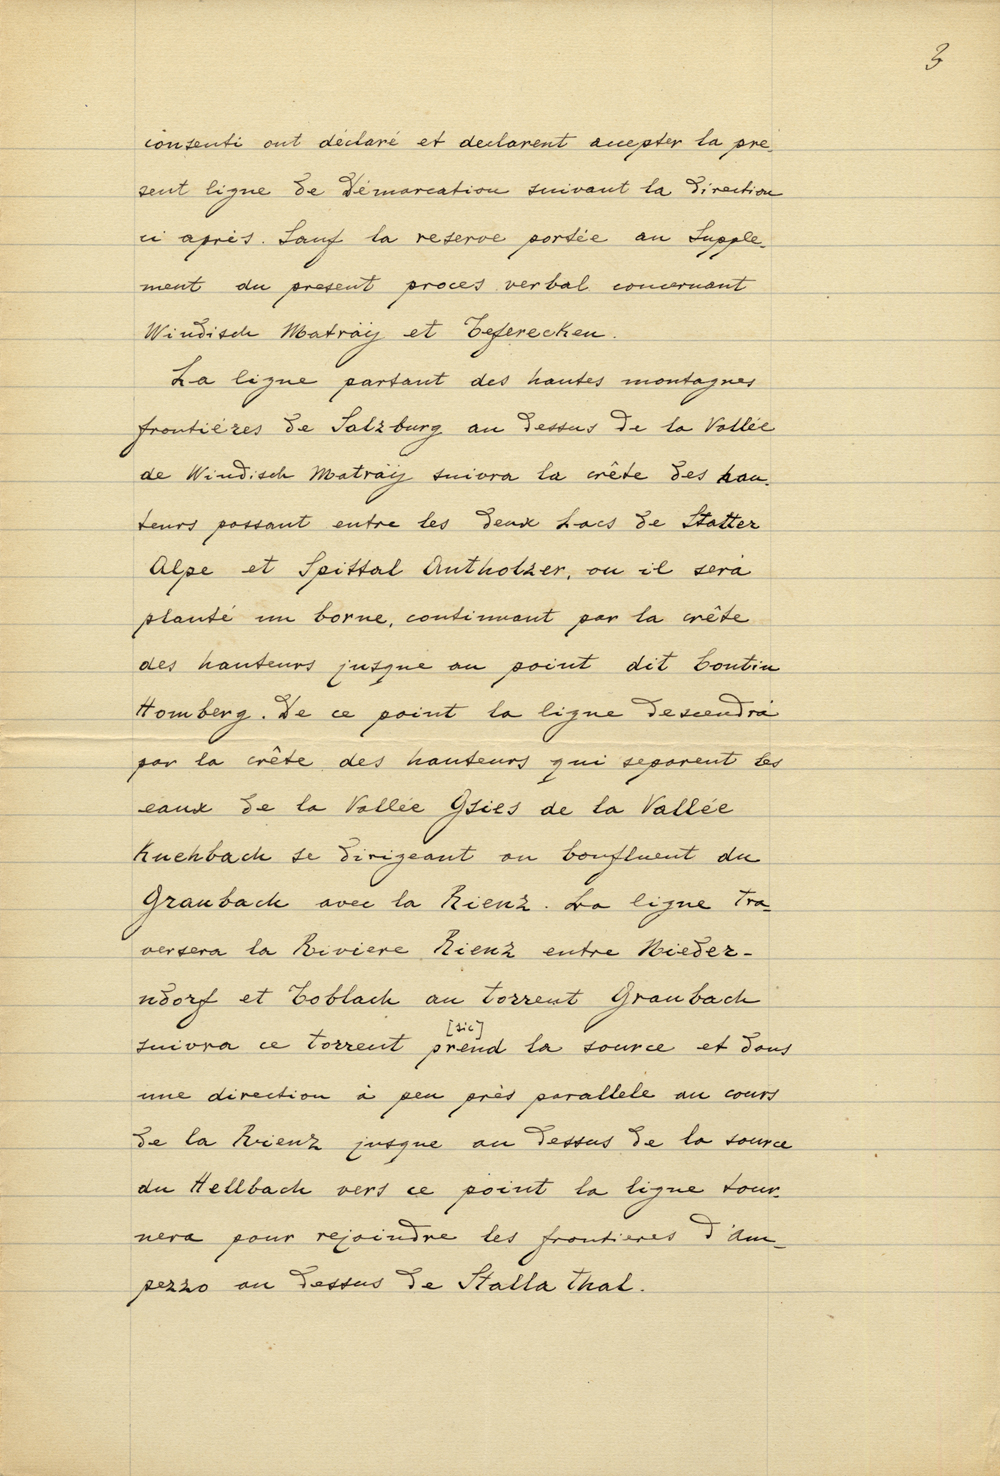 3
consenti ont déclaré et declarent accepter la pre-
sent ligne de Démarcation suivant la direction
ci après. Sauf la reserve portée au Supple-
ment du present proces verbal concernant
Windisch Matraÿ et Tefferecken.
La ligne partant des hautes montagnes
frontiéres de Salzburg au dessus de la Vallée
de Windisch Matraÿ suivra la crête des hau-
teurs passant entre les deux Lacs de Statter
Alpe et Spittal Antholzer, ou il sera
planté un borne, continuant par la crête
des hauteurs jusque au point dit Contin
Homberg. De ce point la ligne descendra
par la crête des hauteurs qui separent les
eaux de la Vallée Gsies de la Vallée
Kuehbach se dirigeant au Confluent du
Graubach avec la Rienz. La ligne tra-
versera la Riviere Rienz entre Nieder-
ndorf et Toblach au torrent Graubach
[sic]
suivra ce torrent prend la source et dans
une direction à peu près parallele au cours
de la Rienz jusque au dessus de la source
du Hellbach vers ce point la ligne tour-
nera pour rejoindre les frontieres d'Am-
pezzo au dessus de Stalla thal.